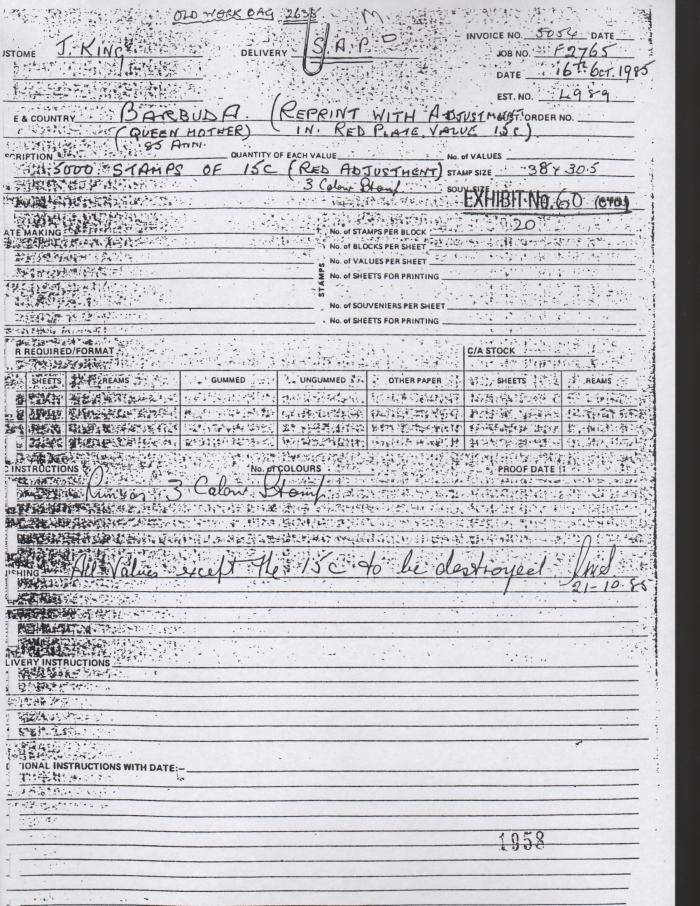 OLD WORK BAG 2635 M
INVOICE NO. 5054 DATE
USTOME J. KING DELIVERY S.A.P
JOB NO. F2765
DATE 16th Oct. 1985
EST. NO. L989
E & COUNTRY BARBUDA. (REPRINT WITH ADJUSTMENT ORDER NO.
(QUEEN MOTHER) IN RED PLATE, VALUE 15c)
85 ANN.
SCRIPTION QUANTITY OF EACH VALUE No. of VALUES
5000 STAMPS OF 15C (RED ADJUSTMENT) STAMP SIZE 38 x 30.5
3 Colour Stamp SOUV. SIZE
EXHIBIT NO. 60
20
ATE MAKING No. of STAMPS PER BLOCK
No. of BLOCKS PER SHEET
No. of VALUES PER SHEET
STAMPS
No. of SHEETS FOR PRINTING
No. of SOUVENIERS PER SHEET
No. of SHEETS FOR PRINTING
R REQUIRED/FORMAT C/A STOCK
SHEETS REAMS GUMMED UNGUMMED OTHER PAPER SHEETS REAMS
INSTRUCTIONS No. of COLOURS PROOF DATE
3 Colour Stamp
All Values except the 15c to be destroyed
SHING 21-10-85
LIVERY INSTRUCTIONS
IONAL INSTRUCTIONS WITH DATE:–
1958